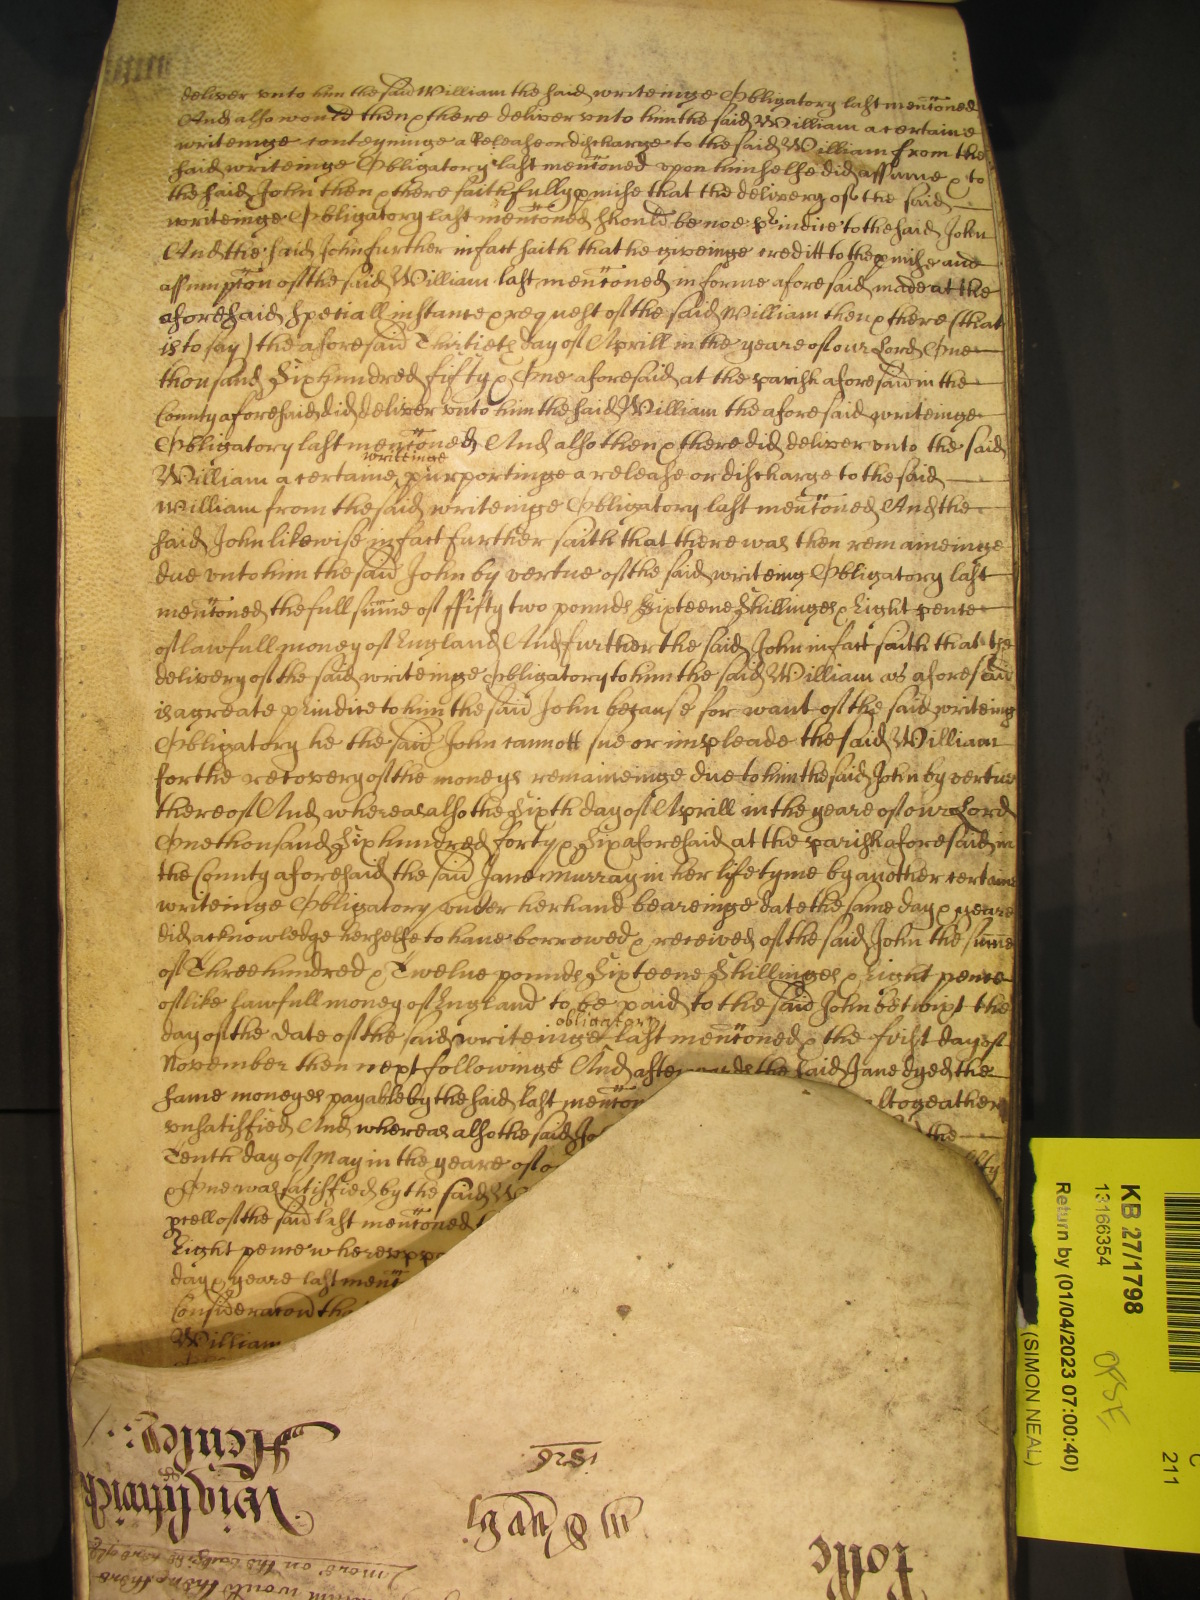 deliver unto him the said William the said writeinge Obligatory last mencioned
And also would then & there deliver unto him the said William a certaine
writeinge conteyninge a Release or discharge to the said William from the
said writeinge Obligatory last mencioned upon himselfe did assume & to
the said John then & there faithfully pmise that the delivery of the said
writeinge Obligatory last mencioned should be noe pjudice to the said John
And the said John further in fact saith that he giveinge creditt to the pmise and
assumpcon of the said William last mencioned in forme aforesaid made at the
aforesaid speciall instance & request of the said William then & there (that
is to say) the aforesaid Thirtieth day of Aprill in the yeare of our Lord One
thousand Six hundred fifty & One aforesaid at the parish aforesaid in the
County aforesaid did deliver unto him the said William the aforesaid writeinge
Obligatory last mencioned And also then & there did deliver unto the said
William a certaine writeinge purportinge a release or discharge to the said
William from the said writeinge Obligatory last mencioned And the
said John likewise in fact further saith that there was then remaineinge
due unto him the said John by vertue of the said writeing Obligatory last
mencioned the full sume of ffifty two pounds Sixteene Shillinges & Eight pence
of lawfull money of England And further the said John in fact saith that the
delivery of the said writeinge Obligatory to him the said William as aforesaid
is a greate pjudice to him the said John because for want of the said writeing
Obligatory he the said John cannott sue or impleade the said William
for the recovery of the moneys remaineinge due to him the said John by vertue
thereof And whereas also the Sixth day of Aprill in the yeare of our Lord
One thousand Six hundred forty & Six aforesaid at the parish aforesaid in
the County aforesaid the said Jane Murray in her life tyme by another certaine
writeinge Obligatory under her hand beareinge date the same day & yeare
did acknowledge herselfe to have borrowed & received of the said John the sume
of Three hundred & Twelve pounds Sixteene Shillinges & Eight pence
of like lawfull money of England to be paid to the said John betwixt the
day of the date of the said writeinge obligatory last mencioned & the first day of
November then next followinge And afterwards the said Jane dyed the
same moneyes payable by the said last mencion altogeather
unsatisfied And whereas also the said Jo the
Tenth day of May in the yeare of o fifty
& One was satisfied by the said W
pcell of the said last mencioned
Eight pence whereupp
day & yeare last menc
Consideracon th
William
KB 27/1798
13166354
Return by (01/04/2023 07:00:40)
(SIMON NEAL)
211
Wightwick
&
Henley